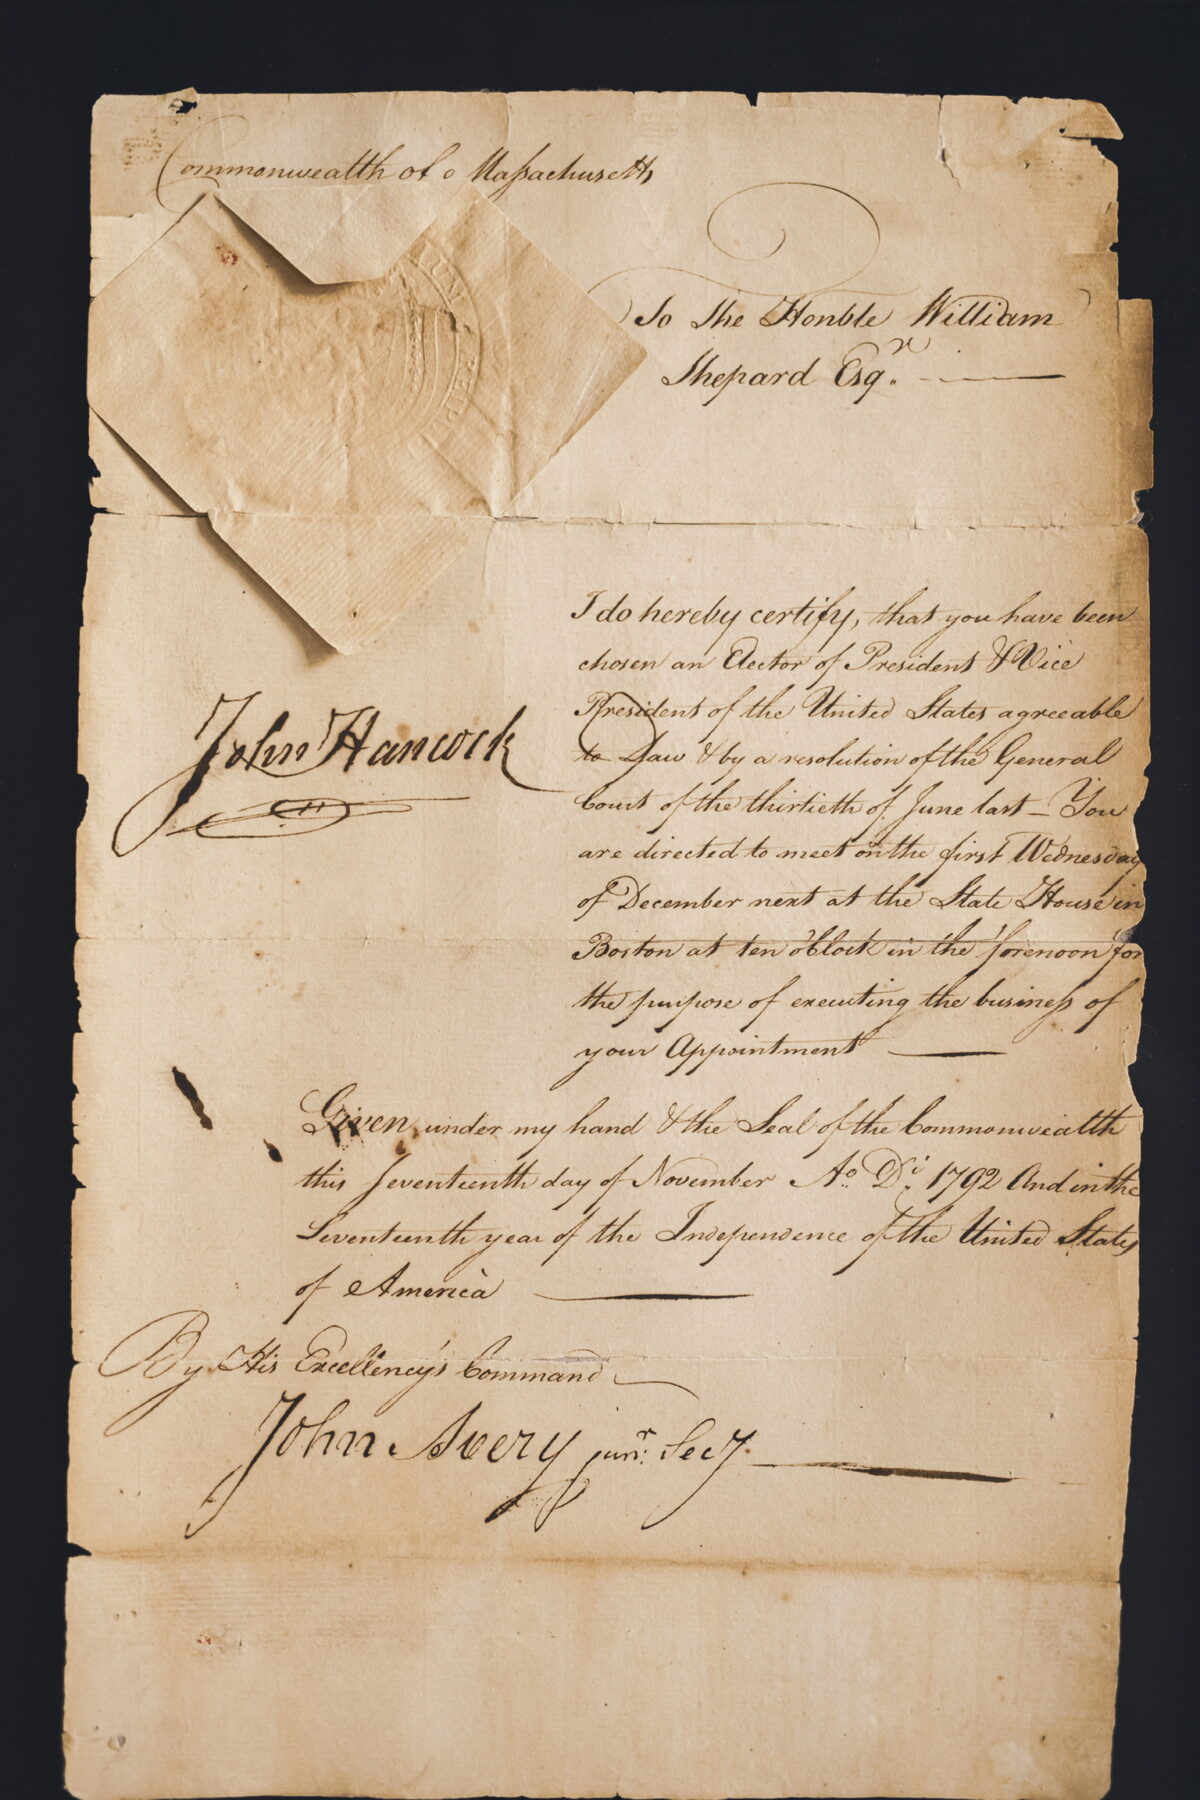 Commonwealth of Massachusetts
To the Honble William
Shepard Esqr.
I do hereby certify, that you have been
chosen an Elector of President & Vice
President of the United States agreeable
to Law & by a resolution of the General
Court of the thirtieth of June last – You
are directed to meet on the first Wednesday
of December next at the State House in
Boston at ten o'Clock in the forenoon for
the purpose of executing the business of
your Appointment
John Hancock
Given under my hand & the Seal of the Commonwealth
this Seventeenth day of November Ao. Di. 1792 And in the
Seventeenth year of the Independence of the United States
of America
By His Excellency's Command
John Avery junr. Secy.